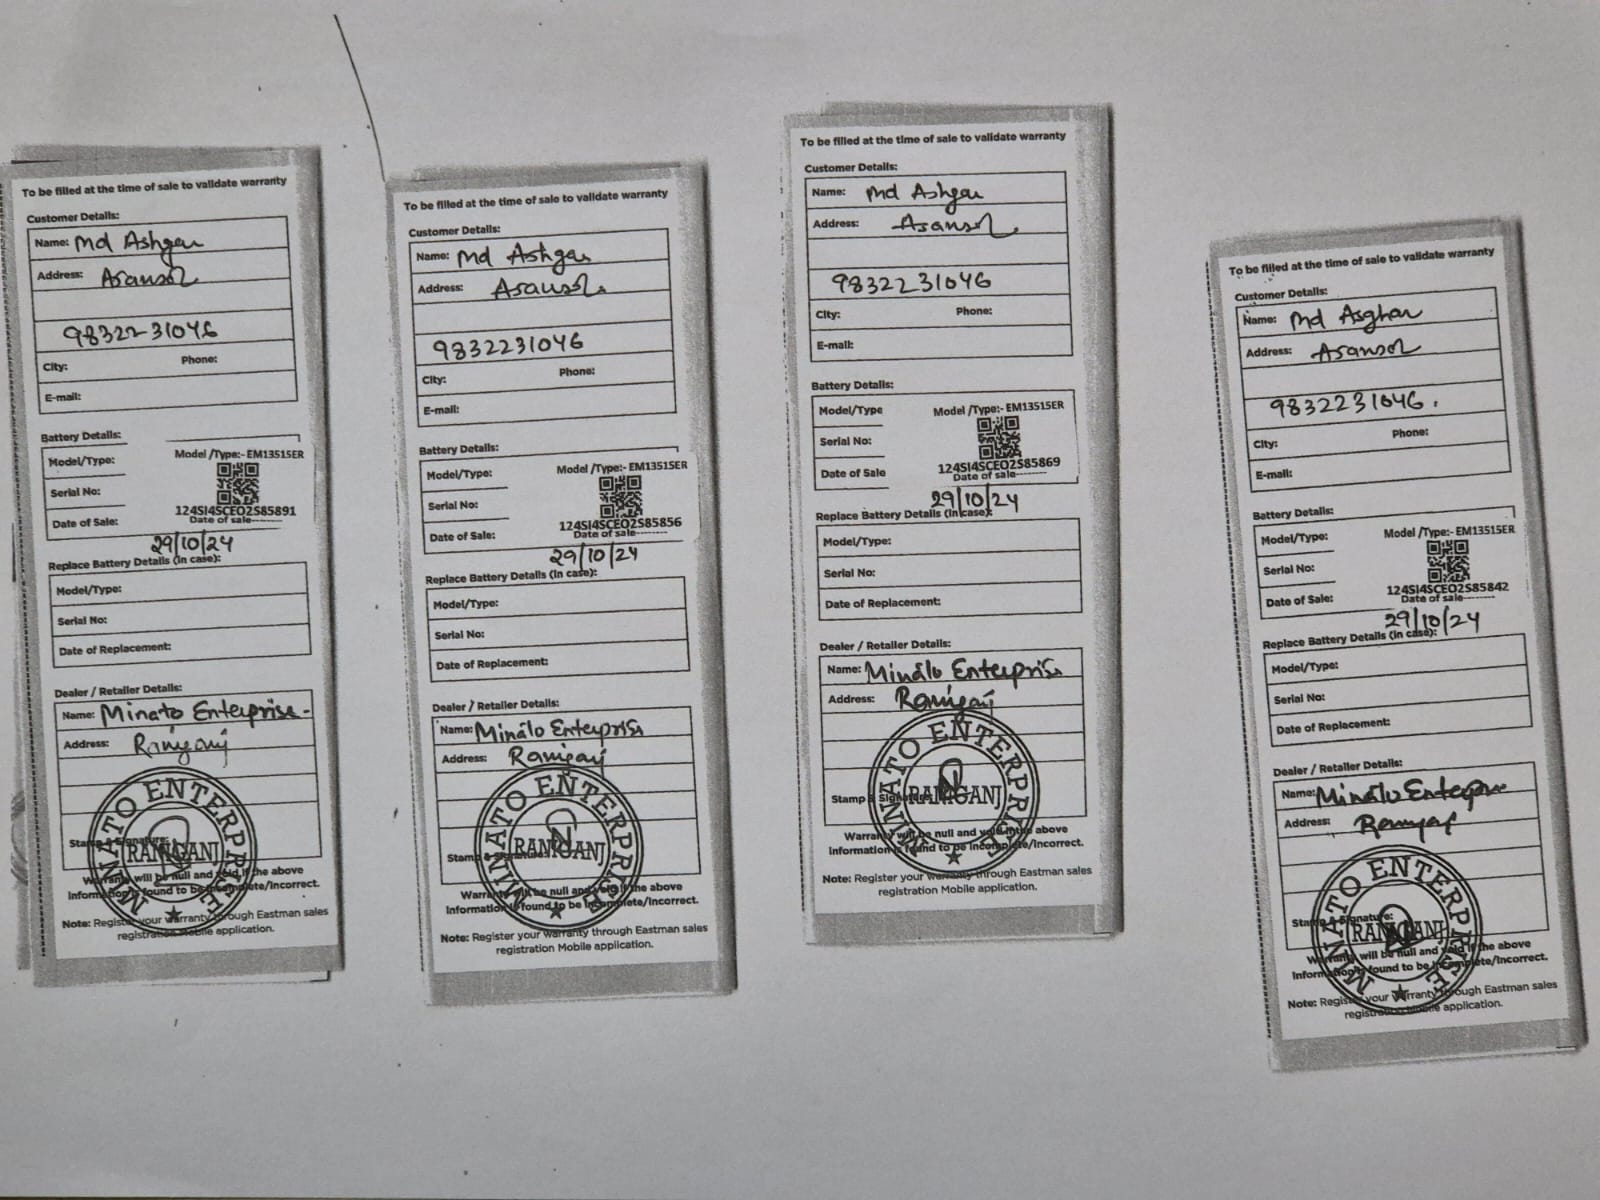 To be filled at the time of sale to validate warranty
Customer Details:
Name: Md Ashgar
Address: Asansol
9832231046
City: Phone:
E-mail:
Battery Details:
Model/Type: Model /Type:- EM13515ER
Serial No:
124SI4SCEO2S85891
Date of Sale: Date of sale--------
29/10/24
Replace Battery Details (In case):
Model/Type:
Serial No:
Date of Replacement:
Dealer / Retailer Details:
Name: Minato Enterprise
Address: Raniganj
MINATO ENTERPRISE
RANIGANJ
Stamp & Signature:
Warranty will be null and void if the above
information is found to be incomplete/Incorrect.
Note: Register your warranty through Eastman sales
registration Mobile application.
To be filled at the time of sale to validate warranty
Customer Details:
Name: Md Ashgar
Address: Asansol
9832231046
City: Phone:
E-mail:
Battery Details:
Model/Type: Model /Type:- EM13515ER
Serial No:
124SI4SCEO2S85856
Date of Sale: Date of sale--------
29/10/24
Replace Battery Details (In case):
Model/Type:
Serial No:
Date of Replacement:
Dealer / Retailer Details:
Name: Minato Enterprise
Address: Raniganj
MINATO ENTERPRISE
RANIGANJ
Stamp & Signature:
Warranty will be null and void if the above
information is found to be incomplete/Incorrect.
Note: Register your warranty through Eastman sales
registration Mobile application.
To be filled at the time of sale to validate warranty
Customer Details:
Name: Md Ashgar
Address: Asansol
9832231046
City: Phone:
E-mail:
Battery Details:
Model/Type Model /Type:- EM13515ER
Serial No:
124SI4SCEO2S85869
Date of Sale Date of sale--------
29/10/24
Replace Battery Details (In case):
Model/Type:
Serial No:
Date of Replacement:
Dealer / Retailer Details:
Name: Minato Enterprise
Address: Raniganj
MINATO ENTERPRISE
RANIGANJ
Stamp & Signature:
Warranty will be null and void if the above
information is found to be incomplete/Incorrect.
Note: Register your warranty through Eastman sales
registration Mobile application.
To be filled at the time of sale to validate warranty
Customer Details:
Name: Md Asghar
Address: Asansol
9832231046.
City: Phone:
E-mail:
Battery Details:
Model/Type: Model /Type:- EM13515ER
Serial No:
124SI4SCEO2S85842
Date of Sale: Date of sale--------
29/10/24
Replace Battery Details (In case):
Model/Type:
Serial No:
Date of Replacement:
Dealer / Retailer Details:
Name: Minato Enterprise
Address: Raniganj
MINATO ENTERPRISE
RANIGANJ
Stamp & Signature:
Warranty will be null and void if the above
information is found to be incomplete/Incorrect.
Note: Register your warranty through Eastman sales
registration Mobile application.